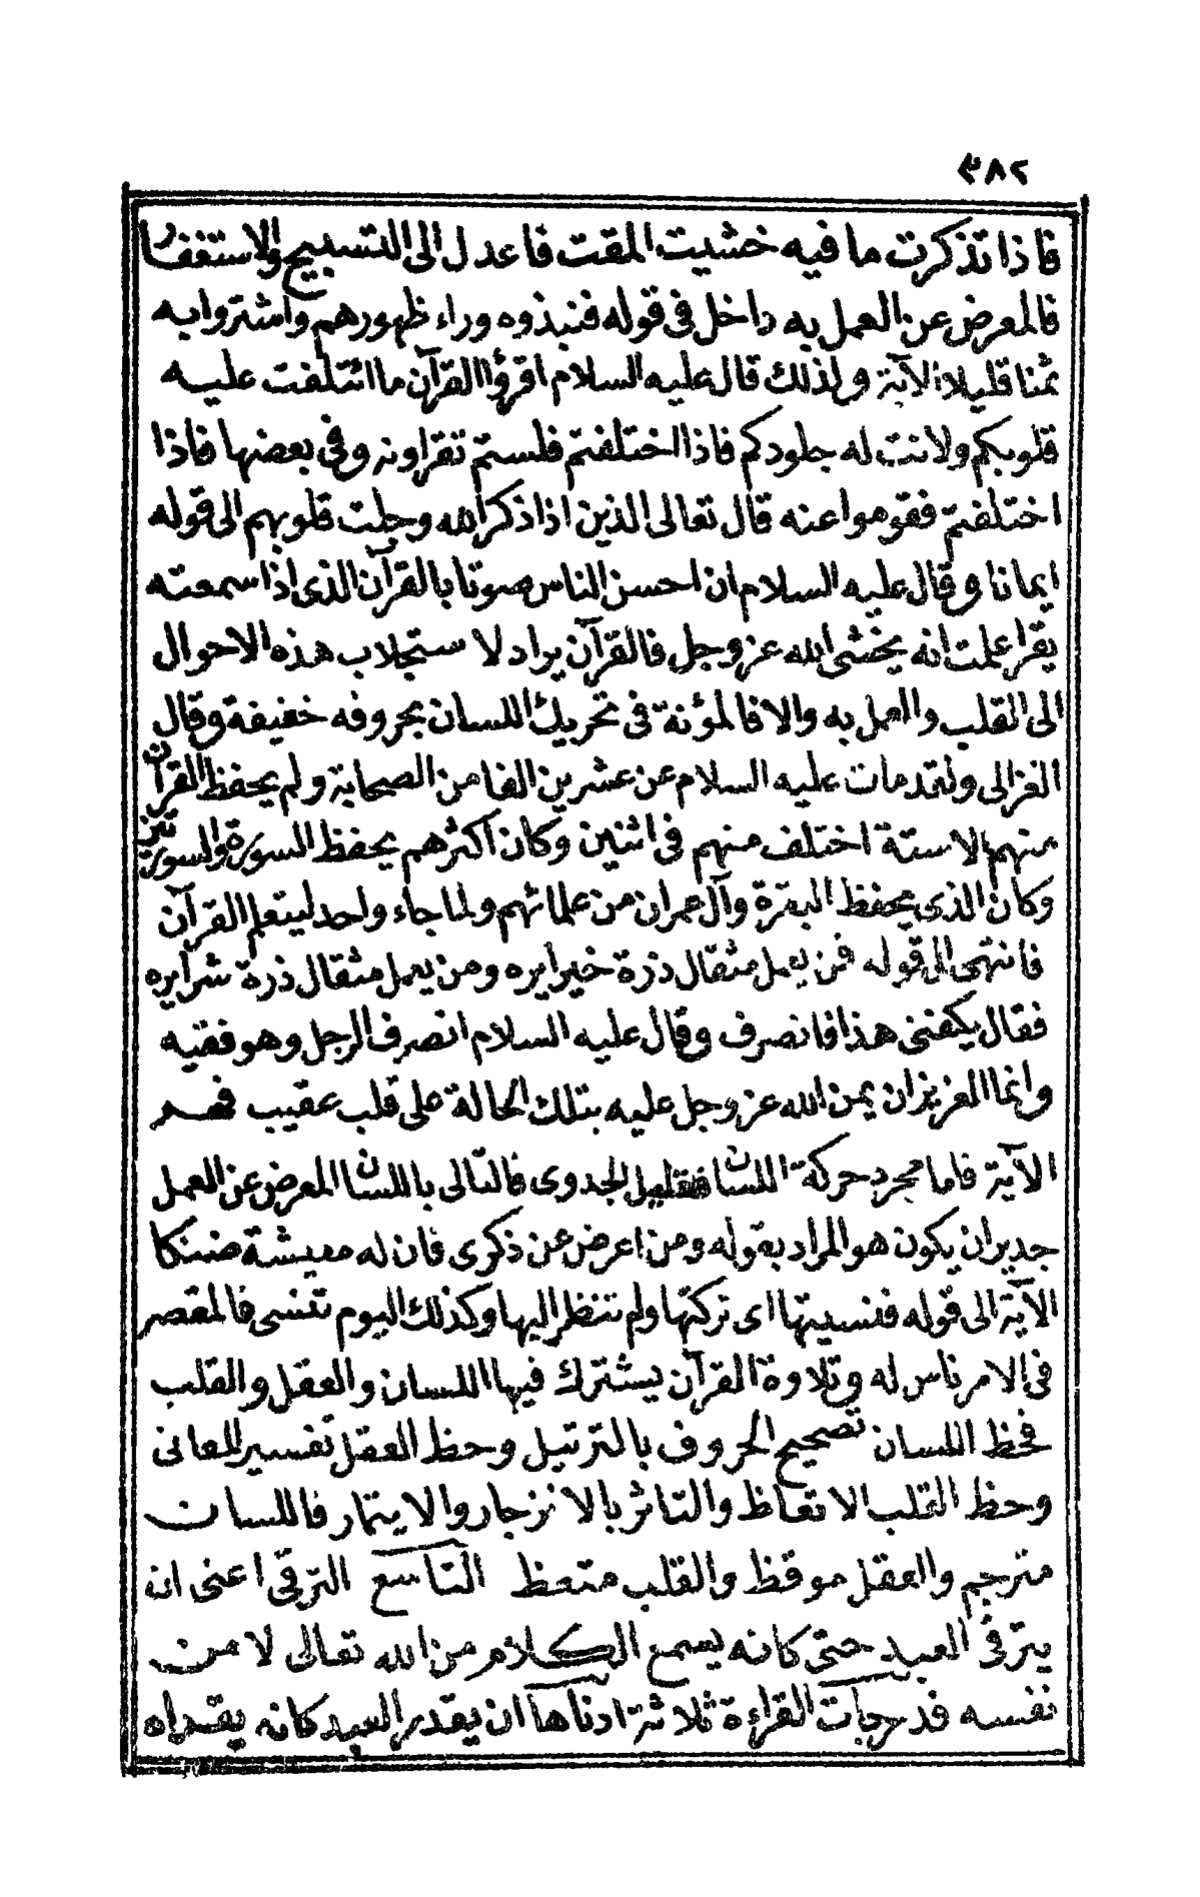 ٣٨٢
فاذا تذكرت ما فيه خشيت المقت فاعدل الى التسبيح والاستغفار
فالمعرض عن العمل به داخل فى قوله فنبذوه وراء ظهورهم واشتروا به
ثمنا قليلا الآية ولذلك قال عليه السلام اقرؤا القرآن ما ائتلفت عليه
قلوبكم ولانت له جلودكم فاذا اختلفتم فلستم تقراونه وفى بعضها فاذا
اختلفتم فقوموا عنه قال تعالى الذين اذا ذكر الله وجلت قلوبهم الى قوله
ايمانا وقال عليه السلام ان احسن الناس صوتا بالقرآن الذى اذا سمعته
يقرا علمت انه يخشى الله عز وجل فالقرآن يراد لا ستجلاب هذه الاحوال
الى القلب والعمل به والا فالمؤنة فى تحريك اللسان بحروفه خفيفة وقال
الغزالى ولقدمات عليه السلام عن عشرين الفا من الصحابة ولم يحفظ القرآن
منهم الا ستة اختلف منهم فى اثنين وكان اكثرهم يحفظ السورة والسورتين
وكان الذى يحفظ البقرة وآل عمران من علمائهم ولما جاء واحد ليتعلم القرآن
فانتهى الى قوله فمن يعمل مثقال ذرة خيرا يره ومن يعمل مثقال ذرة شرا يره
فقال يكفنى هذا فانصرف وقال عليه السلام انصرف الرجل وهو فقيه
وانما العزيز ان يمن الله عز وجل عليه بتلك الحالة على قلب عقيب فهم
الآية فاما مجرد حركة اللسان فقليل الجدوى فالتالى باللسان المعرض عن العمل
جدير ان يكون هو المراد بقوله ومن اعرض عن ذكرى فان له معيشة ضنكا
الآية الى قوله فنسيتها اى تركتها ولم تنظر اليها وكذلك اليوم تنسى فالمقصر
فى الامر ناس له وتلاوة القرآن يشترك فيها اللسان والعقل والقلب
فحظ اللسان تصحيح الحروف بالترتيل وحظ العقل تفسير المعانى
وحظ القلب الاتعاظ والتاثر بالانزجار والايتمار فاللسان
مترجم والعقل موقظ والقلب متعظ التاسع الترقى اعنى انه
يترقى العبد حتى كانه يسمع الكلام من الله تعالى لا من
نفسه فدرجات القراءة ثلاثة ادناها ان يقدر العبد كانه يقراه